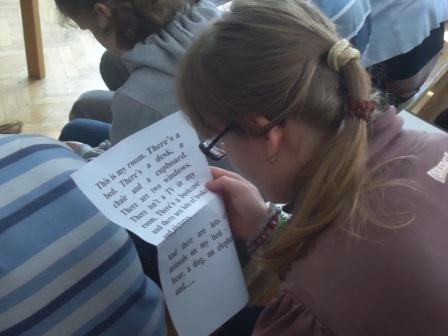 This is my room. There's a
bed. There's a desk, a
chair and a cupboard.
There are two windows.
There isn't a TV in my
room. There's a bookcase
and there are lots of
and there are lots
animals on my bed -
bear, a dog, an elephant
and.....